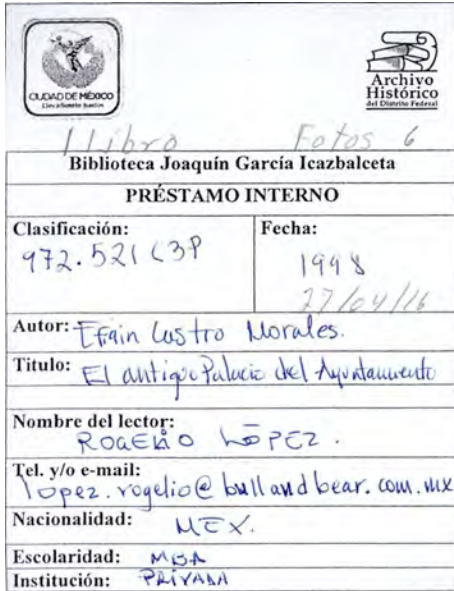 CIUDAD DE MÉXICO
Archivo
Histórico
del Distrito Federal
1 Libro Fotos 6
Biblioteca Joaquín García Icazbalceta
PRÉSTAMO INTERNO
Clasificación: Fecha:
972.521 C3P 1998
27/04/16
Autor: Efrain Castro Morales.
Titulo: El antiguo Palacio del Ayuntamiento
Nombre del lector:
ROGELIO LÓPEZ.
Tel. y/o e-mail:
lopez.rogelio@bullandbear.com.mx
Nacionalidad: MEX.
Escolaridad: MBA
Institución: PRIVADA